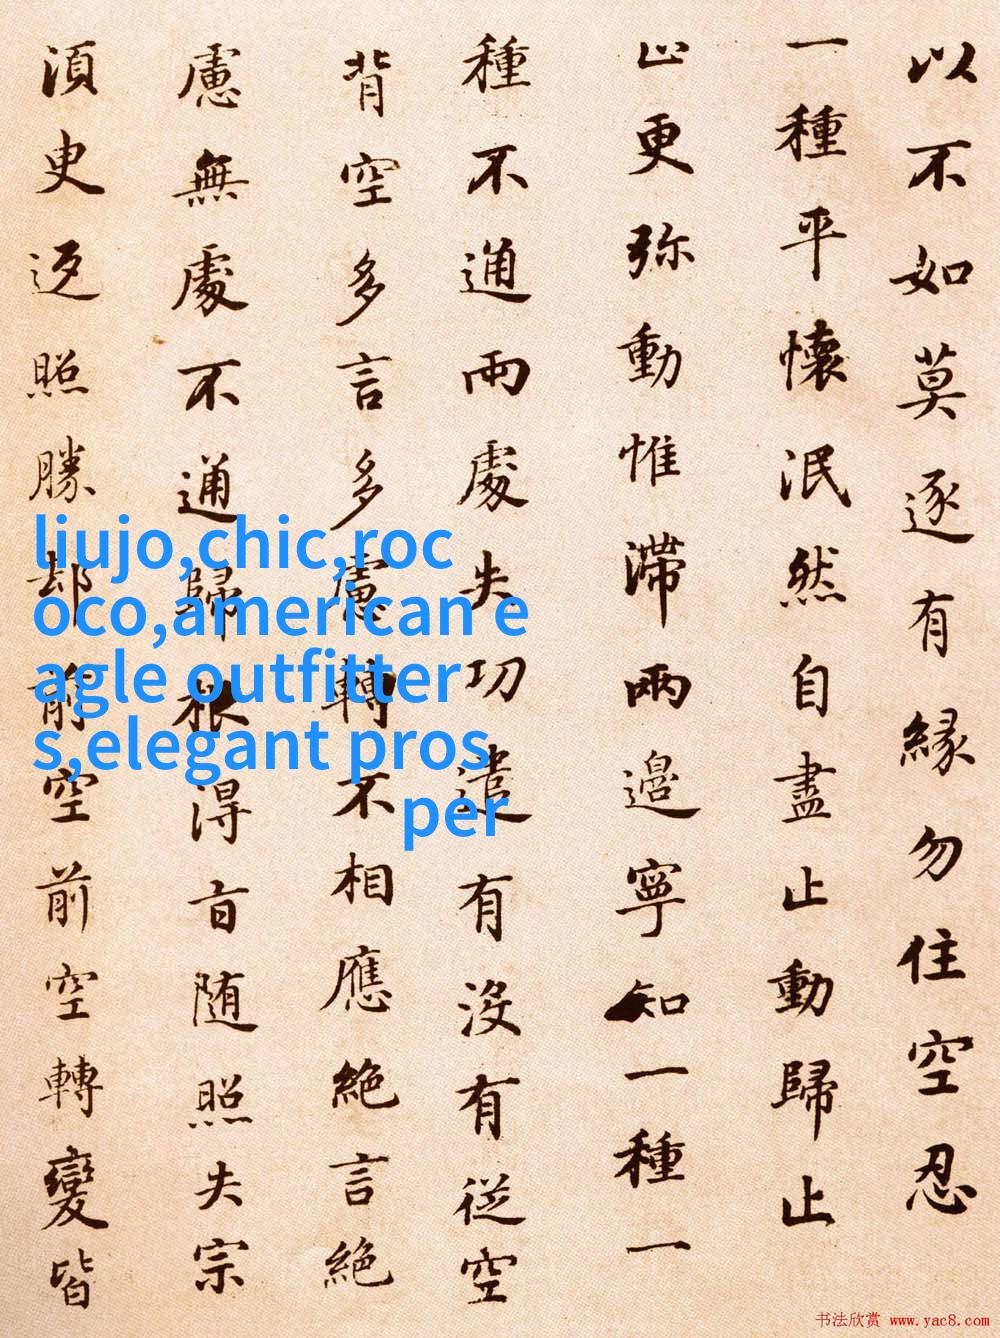 以不如莫逐有緣勿住空忍
一種平懷泯然自盡止動歸止
止更弥動惟滯兩邊寧知一種一
種不通兩處失功遣有没有從空
背空多言多慮轉不相應絶言絶
慮無處不通歸根得旨随照失宗
須臾返照勝却前空前空轉變皆
liujo,chic,roc
oco,american e
agle outfitter
s,elegant pros
per
书法欣赏 www.yac8.com